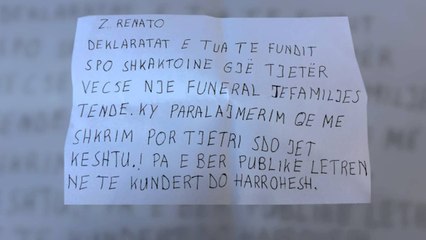 Z. RENATO
DEKLARATAT E TUA TE FUNDIT
SPO SHKAKTOINE GJË TJETËR
VECSE NJE FUNERAL TEFAMILJES
TENDE. KY PARALAJMERIM QE ME
SHKRIM POR TJETRI SDO JET
KESHTU.! PA E BER PUBLIKE LETREN
NE TE KUNDERT DO HARROHESH.